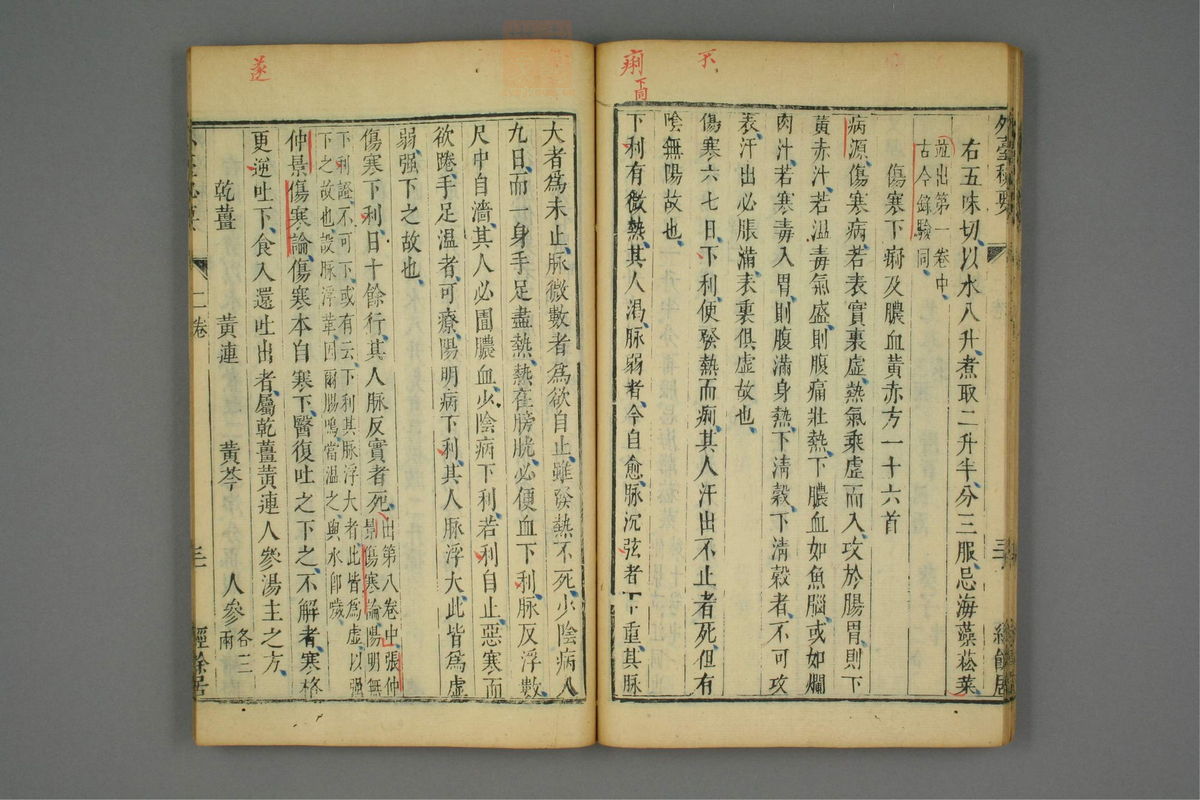 右五味切以水八升煮取二升半分三服忌海藻菘菜
並出第一卷中
古今錄驗同
傷寒下痢及膿血黃赤方一十六首
病源傷寒病若表實裏虛熱氣乘虛而入攻於腸胃則下
黃赤汁若溫毒氣盛則腹痛壯熱下膿血如魚腦或如爛
肉汁若寒毒入胃則腹滿身熱下清穀下清穀者不可攻
表汗出必脹滿表裏俱虛故也
傷寒六七日下利便發熱而痢其人汗出不止者死但有
陰無陽故也
下利有微熱其人渴脈弱者今自愈脈沉弦者下重其脈
痢
下同
大者為未止脈微數者為欲自止雖發熱不死少陰病八
九日而一身手足盡熱熱在膀胱必便血下利脈反浮數
尺中自濇其人必圊膿血少陰病下利若利自止惡寒而
欲踡手足溫者可療陽明病下利其人脈浮大此皆為虛
弱强下之故也
傷寒下利日十餘行其人脈反實者死
出第八卷中張仲
景傷寒論陽明無
下利證不可下或有云下利其脈浮大者此皆為虛以强
下之故也設脈浮革因爾腸鳴當溫之與水即噦
仲景傷寒論傷寒本自寒下醫復吐之下之不解者寒格
更逆吐下食入還吐出者屬乾薑黃連人參湯主之方
乾薑 黃連 黃芩 人參
各三
兩
二卷
三十
經餘居